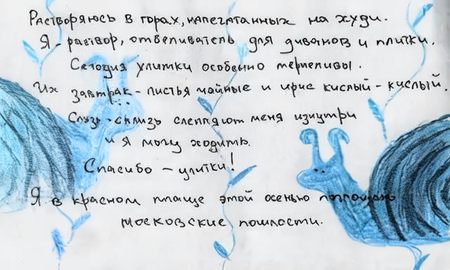 Растворяюсь в горах, напечатанных на худи.
Я - раствор, отбеливатель для диванов и плитки.
Сегодня улитки особенно терпеливы.
Их завтрак - листья чайные и ирис кислый - кислый.
Слизь - склизь слепляют меня изнутри
и я могу ходить.
Спасибо - улитки!
Я в красном плаще этой осенью
московские пошлости.